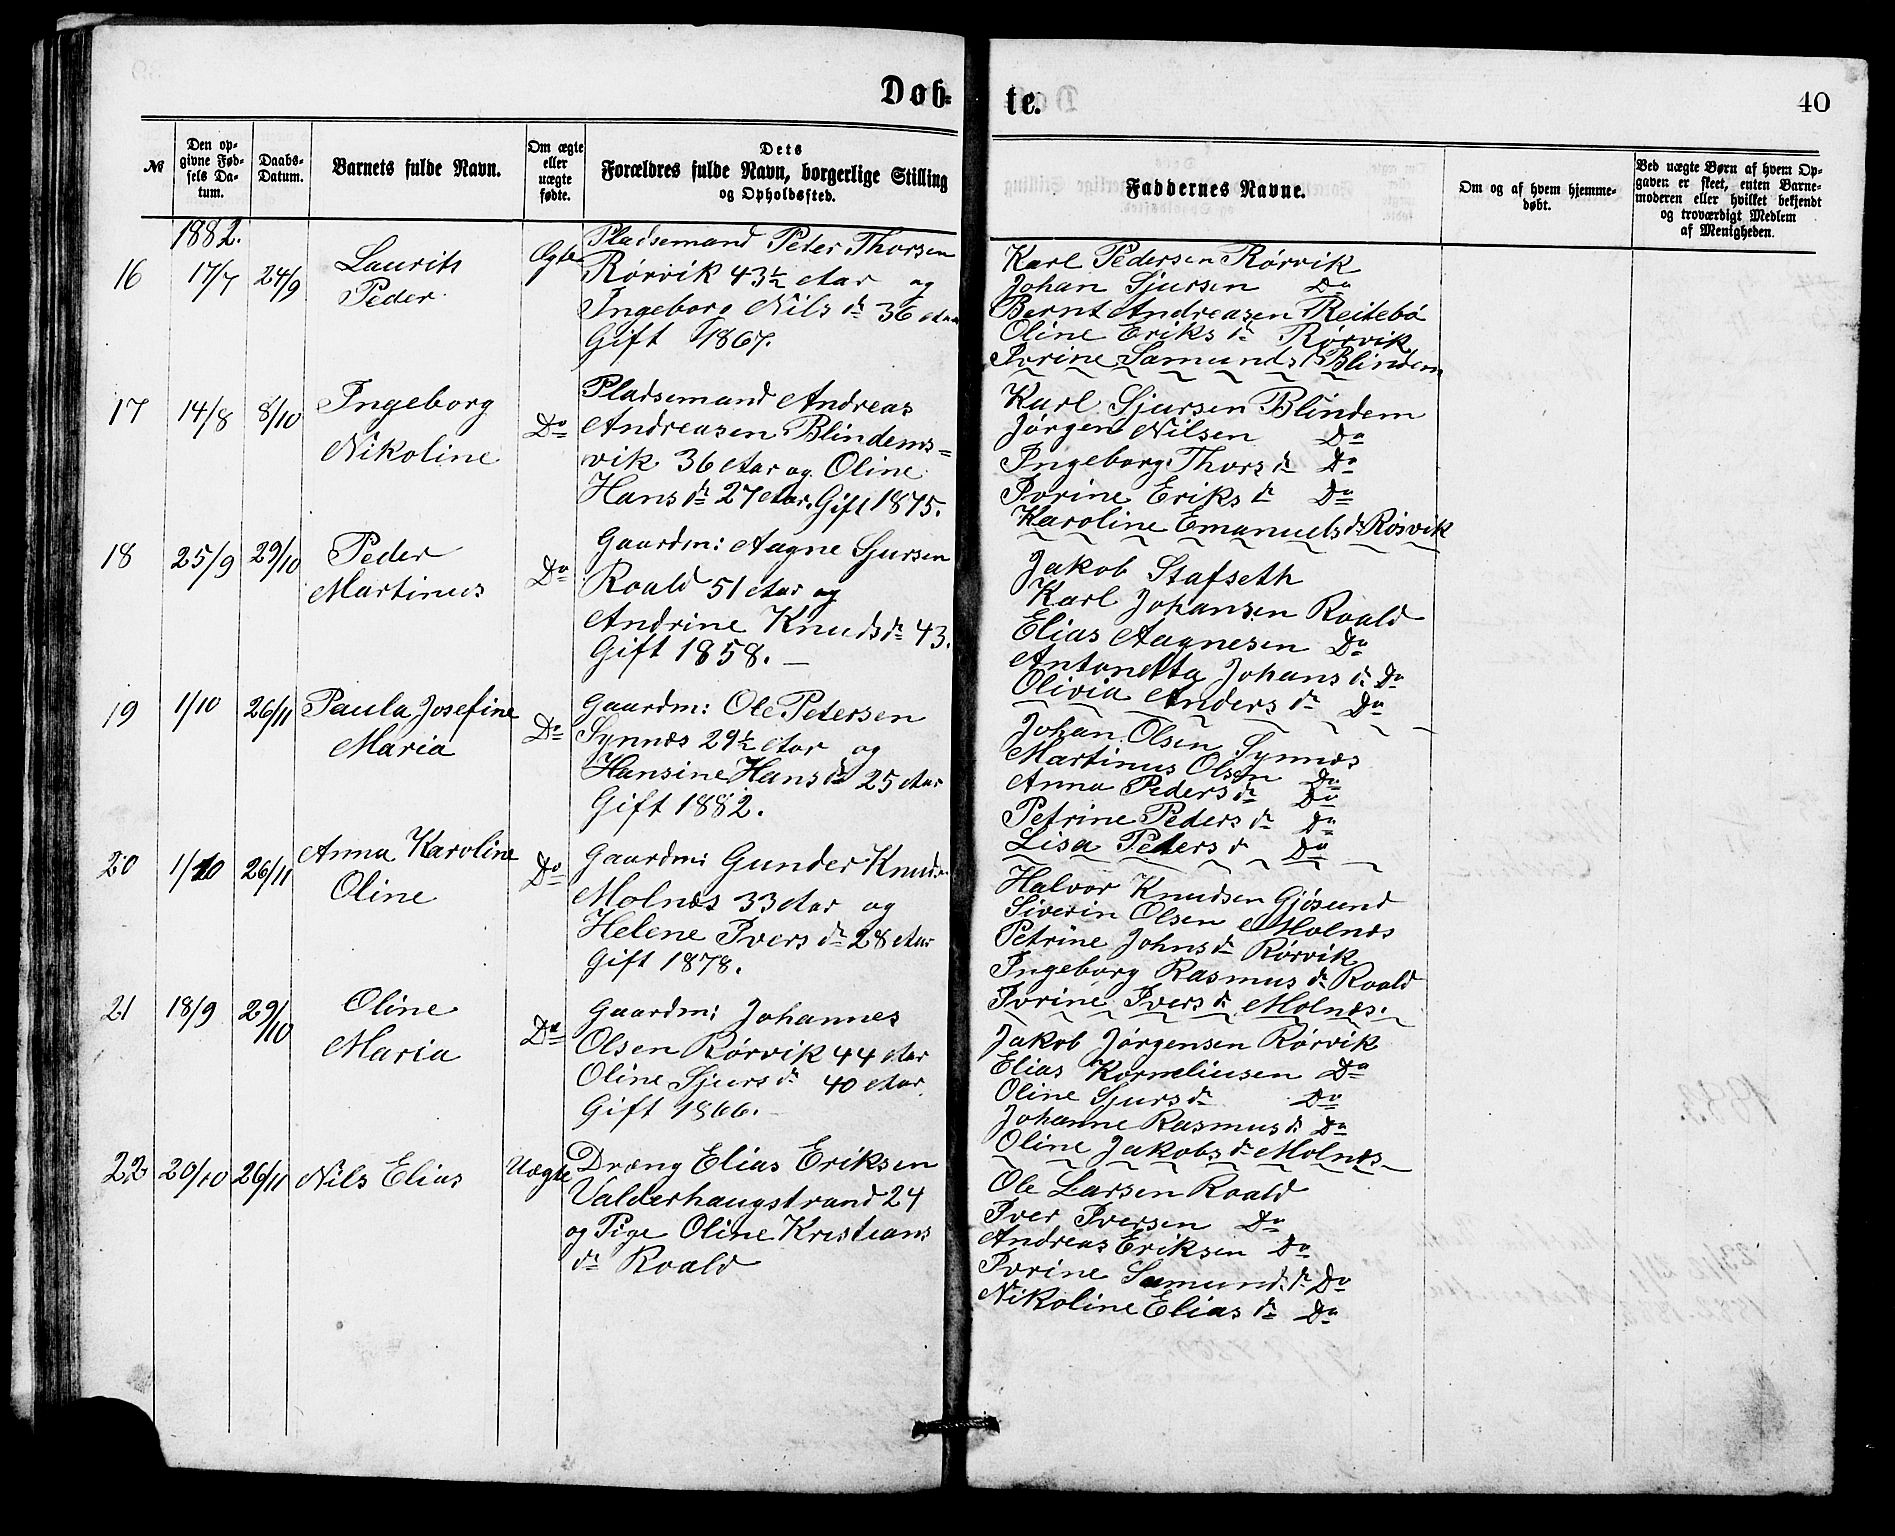 Døb-
te.
40
№
Den op-
givne Fød-
sels Da-
tum.
Daabs-
Datum.
Barnets fulde Navn.
Om ægte
eller
uægte
fødte.
Dets
Forældres fulde Navn, borgerlige Stilling
og Opholdssted.
Faddernes Navne.
Om og af hvem hjemme-
døbt.
Ved uægte Børn af hvem Op-
gaven er skeet, enten Barne-
moderen eller hvilket bekjendt
og troværdigt Medlem
af Menigheden.
1882.
16 17/7 24/9
Laurits
Peder
Ægte
Pladsemand Peder Thorsen
Rørvik 43½ Aar og
Ingeborg Nils dr 36 Aar
Gift 1867.
Karl Pedersen Rørvik
Johan Sjursen Do
Bernt Andreasen Reitebø
Oline Eriks dr Rørvik
Ivrine Samunds d Blindem
17 14/8 8/10
Ingeborg
Nikoline
Do
Pladsemand Andreas
Andreasen Blindems=
vik 36 Aar og Oline
Hans dr 27 Aar. Gift 1875.
Karl Sjursen Blindem
Jørgen Nilsen Do
Ingeborg Thors dr Do
Ivrine Eriks dr Do
Karoline Emanuels dr Rørvik
18 25/9 29/10
Peder
Martinus
Do
Gaardm: Aagne Sjursen
Roald 51 Aar og
Andrine Knuds dr 43.
Gift 1858. —
Jakob Stafseth
Karl Johansen Roald
Elias Aagnesen Do
Antonetta Johans dr Do
Olivia Anders dr Do
19 1/10 26/11
Paula Josefine
Maria
Do
Gaardm: Ole Petersen
Synnes 29½ Aar og
Hansine Hans dr 25 Aar
Gift 1882.
Johan Olsen Synnes
Martinus Olsen Do
Anna Peders dr Do
Petrine Peders dr Do
Lisa Peters d Do
20 1/10 26/11
Anna Karoline
Oline
Do
Gaardm: Gunder Knuds.
Molnes 33 Aar og
Helene Ivers dr 28 Aar
Gift 1878.
Halvor Knudsen Gjøsund
Siverin Olsen Molnes
Petrine Johns dr Rørvik
Ingeborg Rasmus dr Roald
Ivrine Ivers dr Molnes.
21 18/9 29/10
Oline
Maria
Do
Gaardm: Johannes
Olsen Rørvik 44 Aar
Oline Sjurs dr 40 Aar.
Gift 1866. —
Jakob Jørgensen Rørvik
Elias Korneliusen Do
Oline Sjurs dr Do
Johanne Rasmus dr Do
Oline Jakobs dr Molnes
22 20/10 26/11
Nils Elias
Uægte
Dræng Elias Eriksen
Valderhaugstrand 24
og Pige Oline Kristians
dr Roald
Ole Larsen Roald
Iver Iversen Do
Andreas Eriksen Do
Ivrine Samund. dr Do
Nikoline Elias dr Do